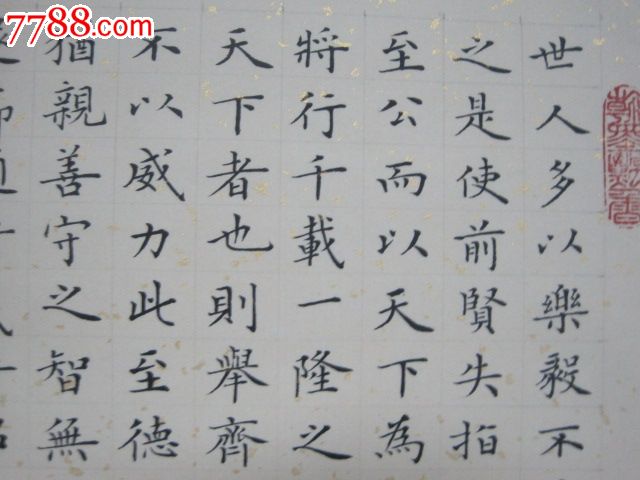 7788.com
世人多以樂毅不
之是使前賢失指
至公而以天下為
將行千載一隆之
天下者也則舉齊
不以威力此至德
猶親善守之智無